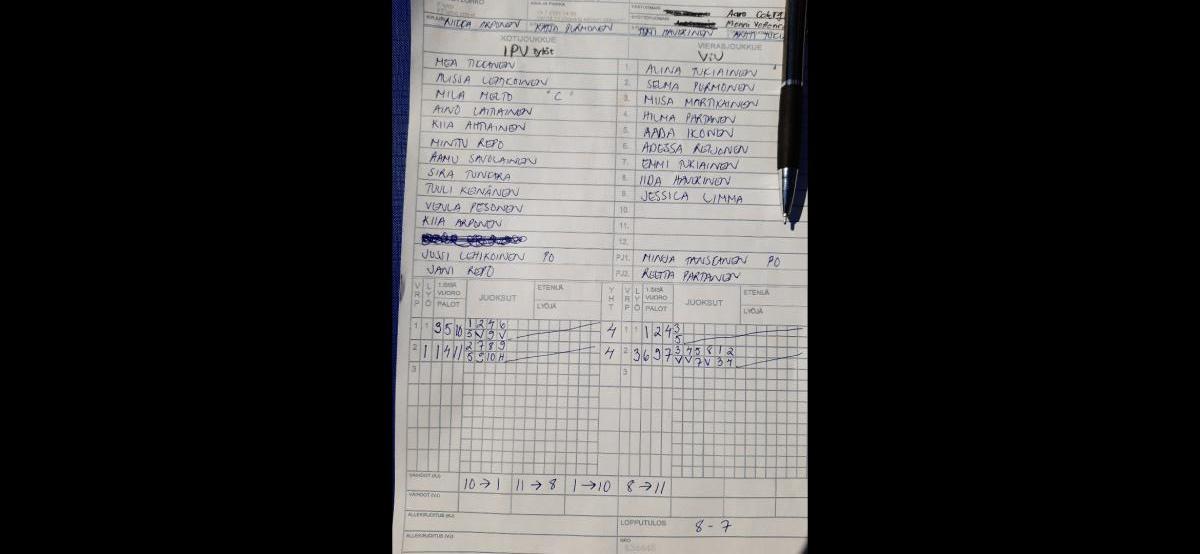 AIKA JA PAIKKA
Aaro
KIRJURI RIIKKA ARPONEN KATJA PURMONEN TONI HAVERINEN
KOTIJOUKKUE VIERASJOUKKUE
IPV tytöt ViU
MEA TIKKANEN 1. ALINA TUKIAINEN
ALISSA LEHIKOINEN 2. SELMA PURMONEN
MILA MELTO "C" 3. MUSA MARTIKAINEN
AINO LAITIAINEN 4. HILMA PARTANEN
KIIA AHTIAINEN 5. AADA IKONEN
MINTTU REPO 6. ADESSA REIJONEN
AAMU SAVOLAINEN 7. EMMI TUKIAINEN
SIRA TUNKARA 8. IIDA HAVERINEN
TUULI KEINÄNEN 9. JESSICA LIMMA
VENLA PESONEN 10.
KIIA ARPONEN 11.
12.
JUSSI LEHIKOINEN PO PJ1. MINJA TANSKANEN PO
JANI REPO PJ2. REETTA PARTANEN
VRP LYÖ 1.SISÄ VUORO PALOT JUOKSUT ETENIJÄ LYÖJÄ YHT VRP LYÖ 1.SISÄ VUORO PALOT JUOKSUT ETENIJÄ LYÖJÄ
1 1 3 5 10 1 2 4 6 4 1 1 1 2 4 3
5 V 9 V 5
2 1 1 4 11 2 7 8 9 4 2 3 6 9 7 3 4 5 8 1 2
5 9 10 H V V 7 V 3 4
3 3
VAIHDOT (KJ) 10→1 11→8 1→10 8→11
VAIHDOT (VJ)
ALLEKIRJOITUS (KJ) LOPPUTULOS 8-7
ALLEKIRJOITUS (VJ) NRO